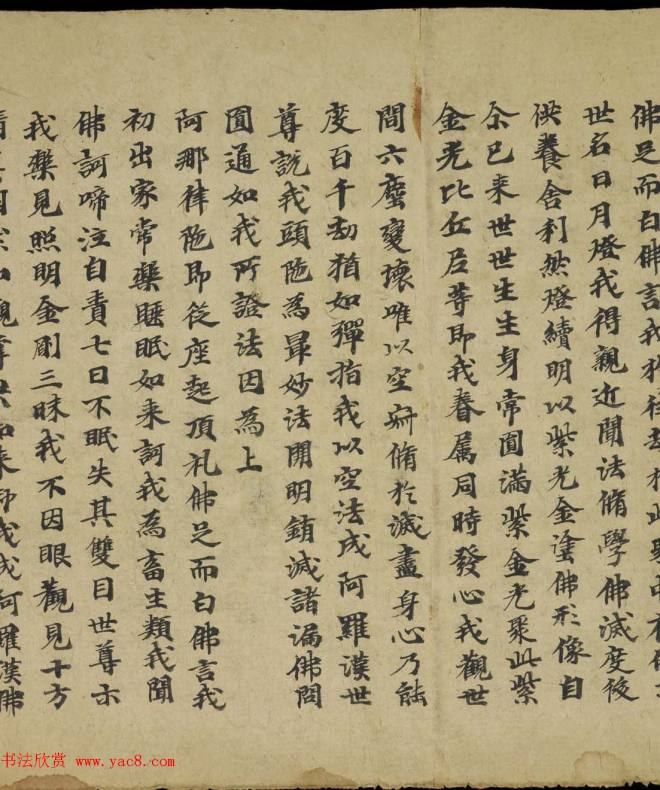 佛足而白佛言我於往劫於此界中有佛
世名日月燈我得親近聞法脩學佛滅度後
供養舍利然燈續明以紫光金塗佛形像自
尒已来世世生生身常圓滿紫金光聚此紫
金光比丘尼等即我眷屬同時發心我觀世
間六塵變壞唯以空寂脩於滅盡身心乃能
度百千劫猶如彈指我以空法成阿羅漢世
尊説我頭陁為最妙法開明銷滅諸漏佛問
圓通如我所證法因為上
阿那律陁即從座起頂礼佛足而白佛言我
初出家常樂睡眠如来訶我為畜生類我聞
佛訶啼泣自責七日不眠失其雙目世尊示
我樂見照明金剛三昧我不因眼觀見十方
精真洞然如觀掌果如来印我成阿羅漢佛
书法欣赏 www.yac8.com